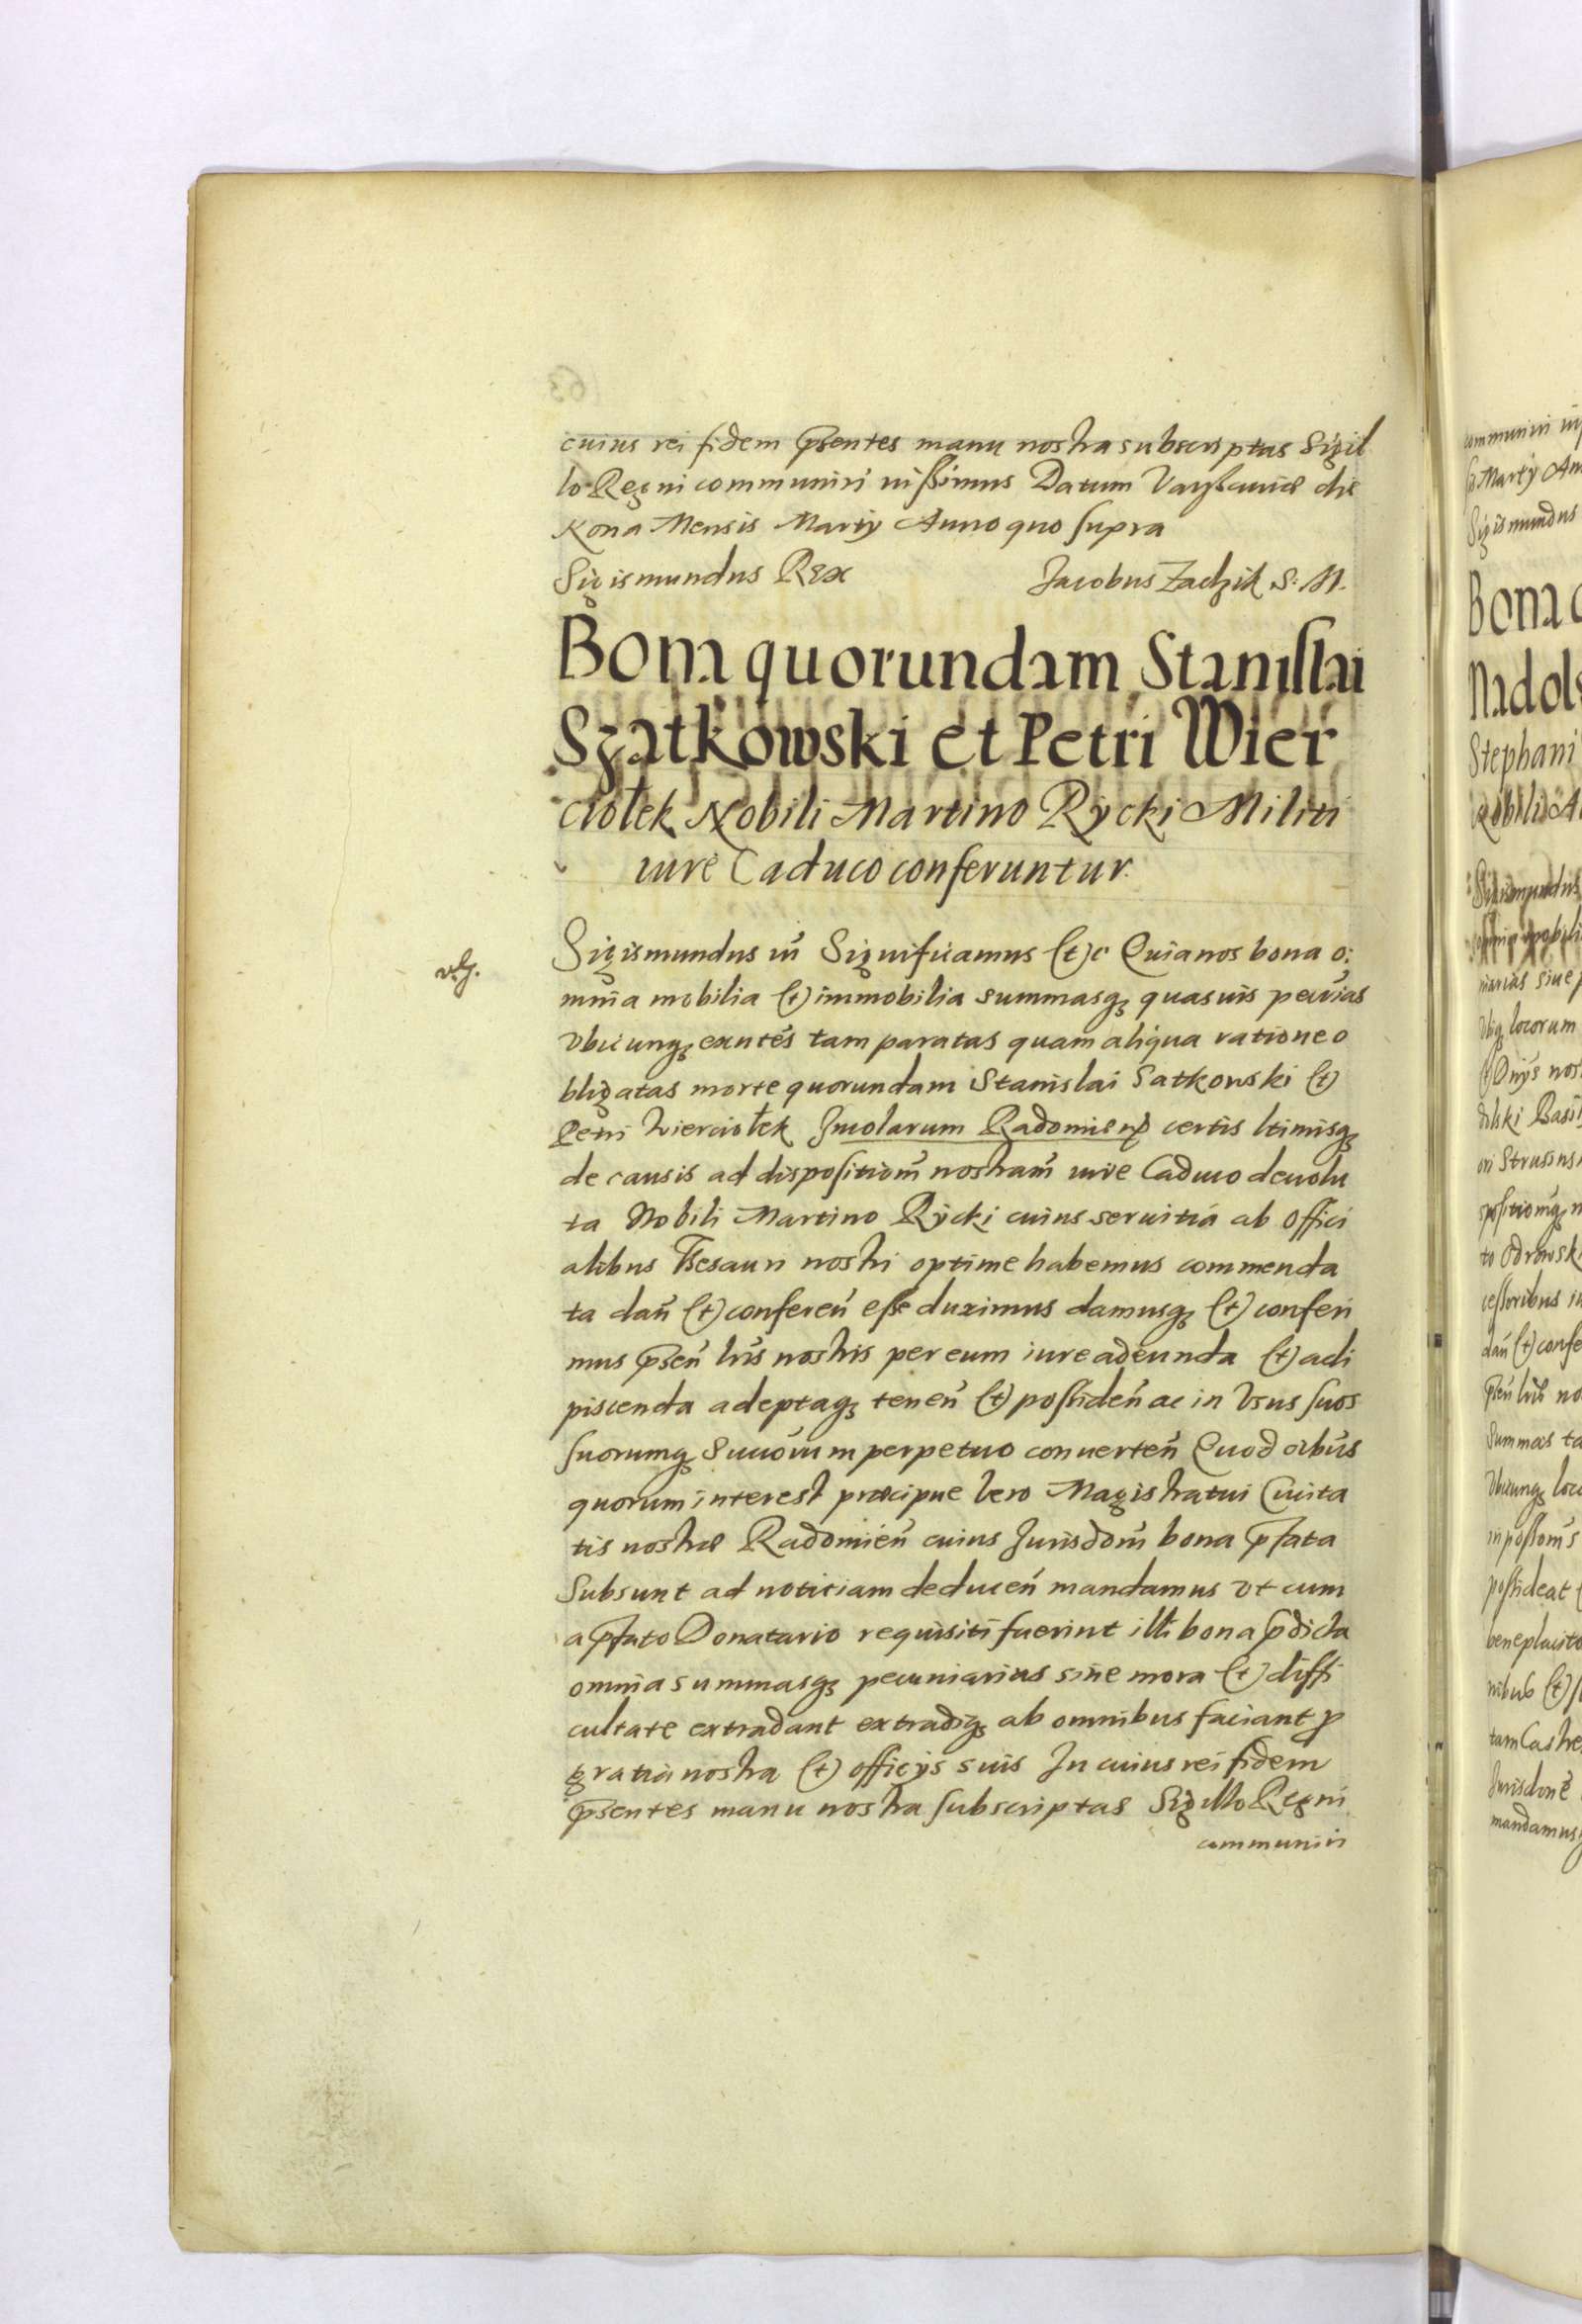 cuius rei fidem p̄sentes manu nostra subscriptas Sigil
lo Regni communiri iussimus Datum Varssauiæ die
Nona Mensis Martÿ Anno quo supra
Sigismundus Rex Jacobus Zadzik S: M.
Bona quorundam Stanislai
Szatkowski et Petri Wier
ciołek Nobili Martino Rycki Militi
iure Caduco conferuntur.
Sigismundus iii Significamus (et)c Quia nos bona o:
mnia mobilia (et) immobilia summasq₃ quasuis pecūias
vbicunq₃ exntēs tam paratas quam aliqua ratione o
bligatas morte quorundam Stanislai Satkowski (et)
Petri Wierciołek Jncolarum Radomien̄ certis ltimisq₃
de causis ad dispositiom̄ nostram̄ iure Caduco deuolu
ta Nobili Martino Rÿcki cuius seruitia ab offici
alibus Thesauri nostri optime habemus commenda
ta dan̄ (et) conferen̄ esse duximus damusq₃ (et) conferi
mus p̄sen̄ lrīs nostris per eum iure adeunda (et) adi
piscenda adeptaq₃ tenen̄ (et) possiden̄ ac in Vsus suos
suorumq₃ Succōrum perpetuo conuerten̄ Quod oībus
quorum interest præcipue Vero Magistratui Ciuita
tis nostræ Radomien̄ cuius Jurisdom̄ bona p̄fata
Subsunt ad noticiam deducen̄ mandamus vt cum
a p̄fato Donatario requisiti fuerint illi bona p̄dicta
omnia summasq₃ pecuniarias sine mora (et) diffi
cultate extradant extradiq₃ ab omnibus faciant p̄
gratia nostra (et) officÿs suis Jn cuius rei fidem
p̄sentes manu nostra subscriptas Sigillo Regni
communiri